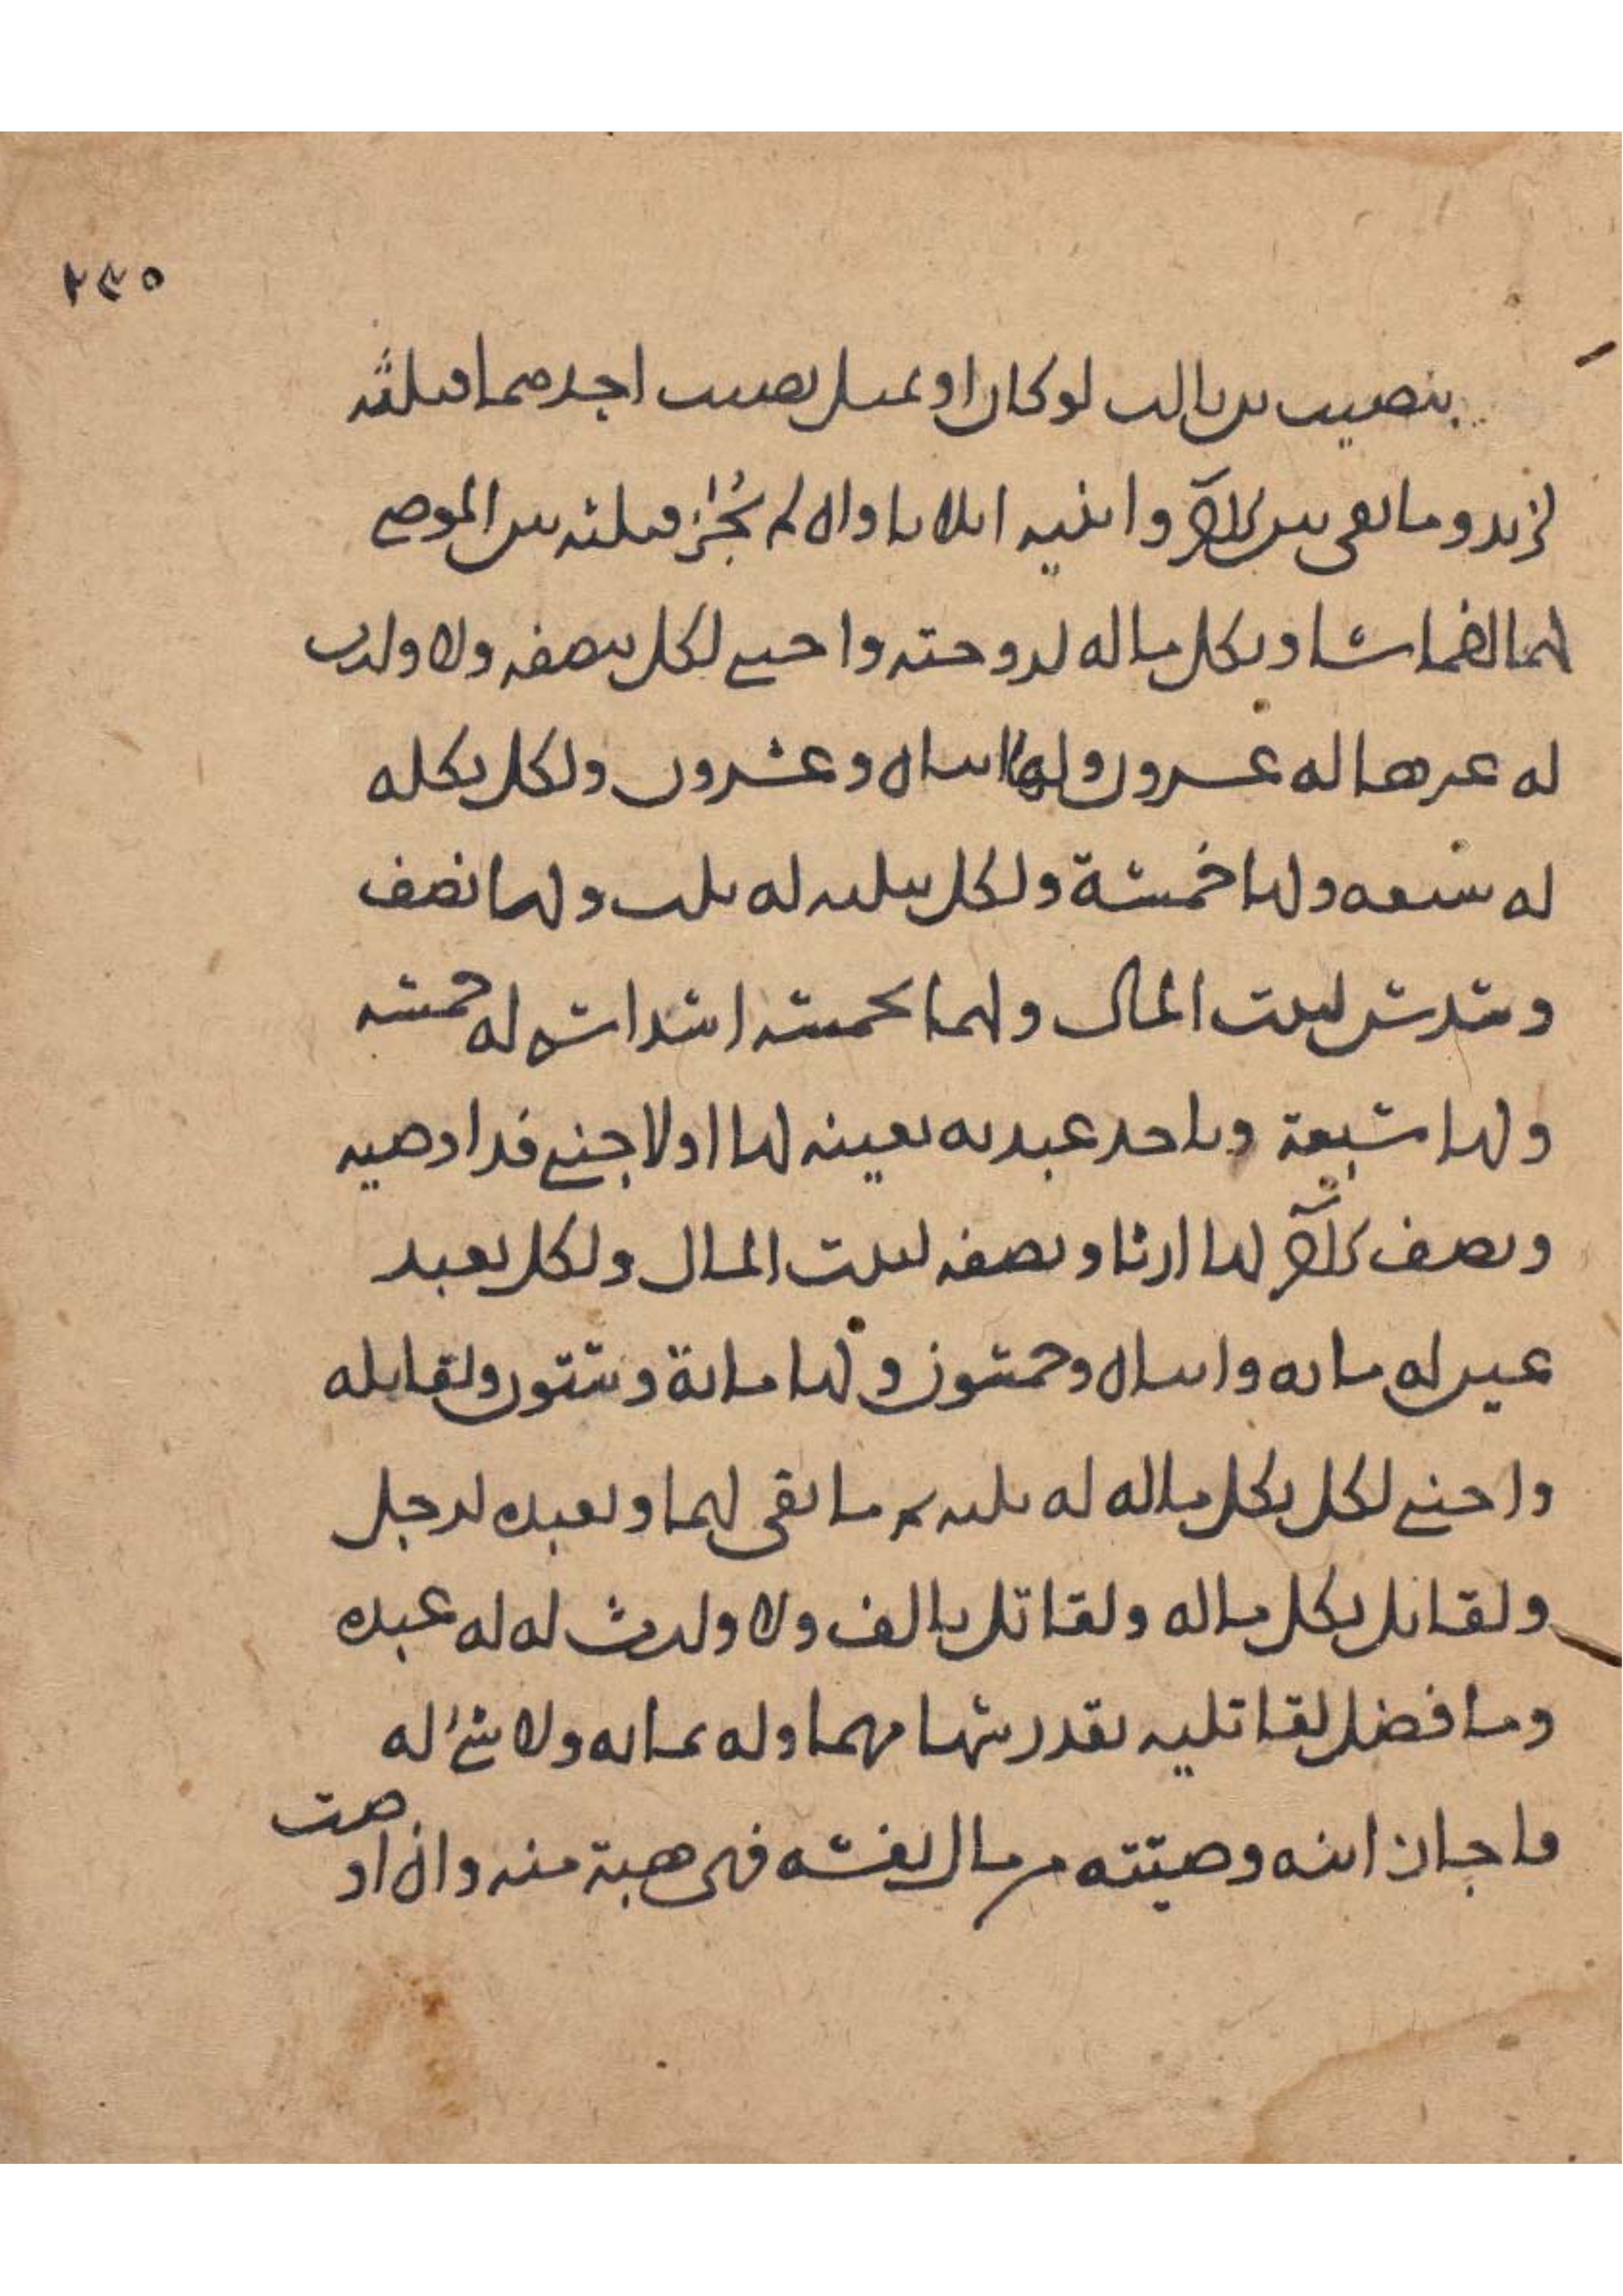 ٢٤٥
بنصيب ابن ثالث لو كان او بمثل نصيب احدهما فثلثه
لزيد وما بقي بين بكر وابنيه اثلاثا وان لم يُجَز فثلثه بين الموصى
لهما انصافا وبكل ماله لزوجته واجنبي لكل بنصفه ولا وارث
له غيرها له عشرون ولها اثنان وعشرون ولكل بكله
له سبعه ولها خمسة ولكل بثلثه له ثلث ولها نصف
وسدس لبيت المال ولهما بخمسه اسداس له خمسه
ولها سبعة وباحد عبديه بعينه لها او لاجنبي فذا وصيه
ونصف بكر لها ارثا ونصفه لبيت المال ولكل بعبد
عين له مايه واثنان وخمسون ولها ماية وستون ولقاتله
واجنبي لكل بكل ماله له ثلثه ثم ما بقي لهما وبعبده لرجل
ولقاتل بكل ماله ولقاتل بالف ولا وارث له له عبده
وما فضل لقاتليه بقدر سهامهما وله بمايه ولا شئ له
فاجاز ابنه وصيته من مال نفسه فهي هبة منه وان اوصت